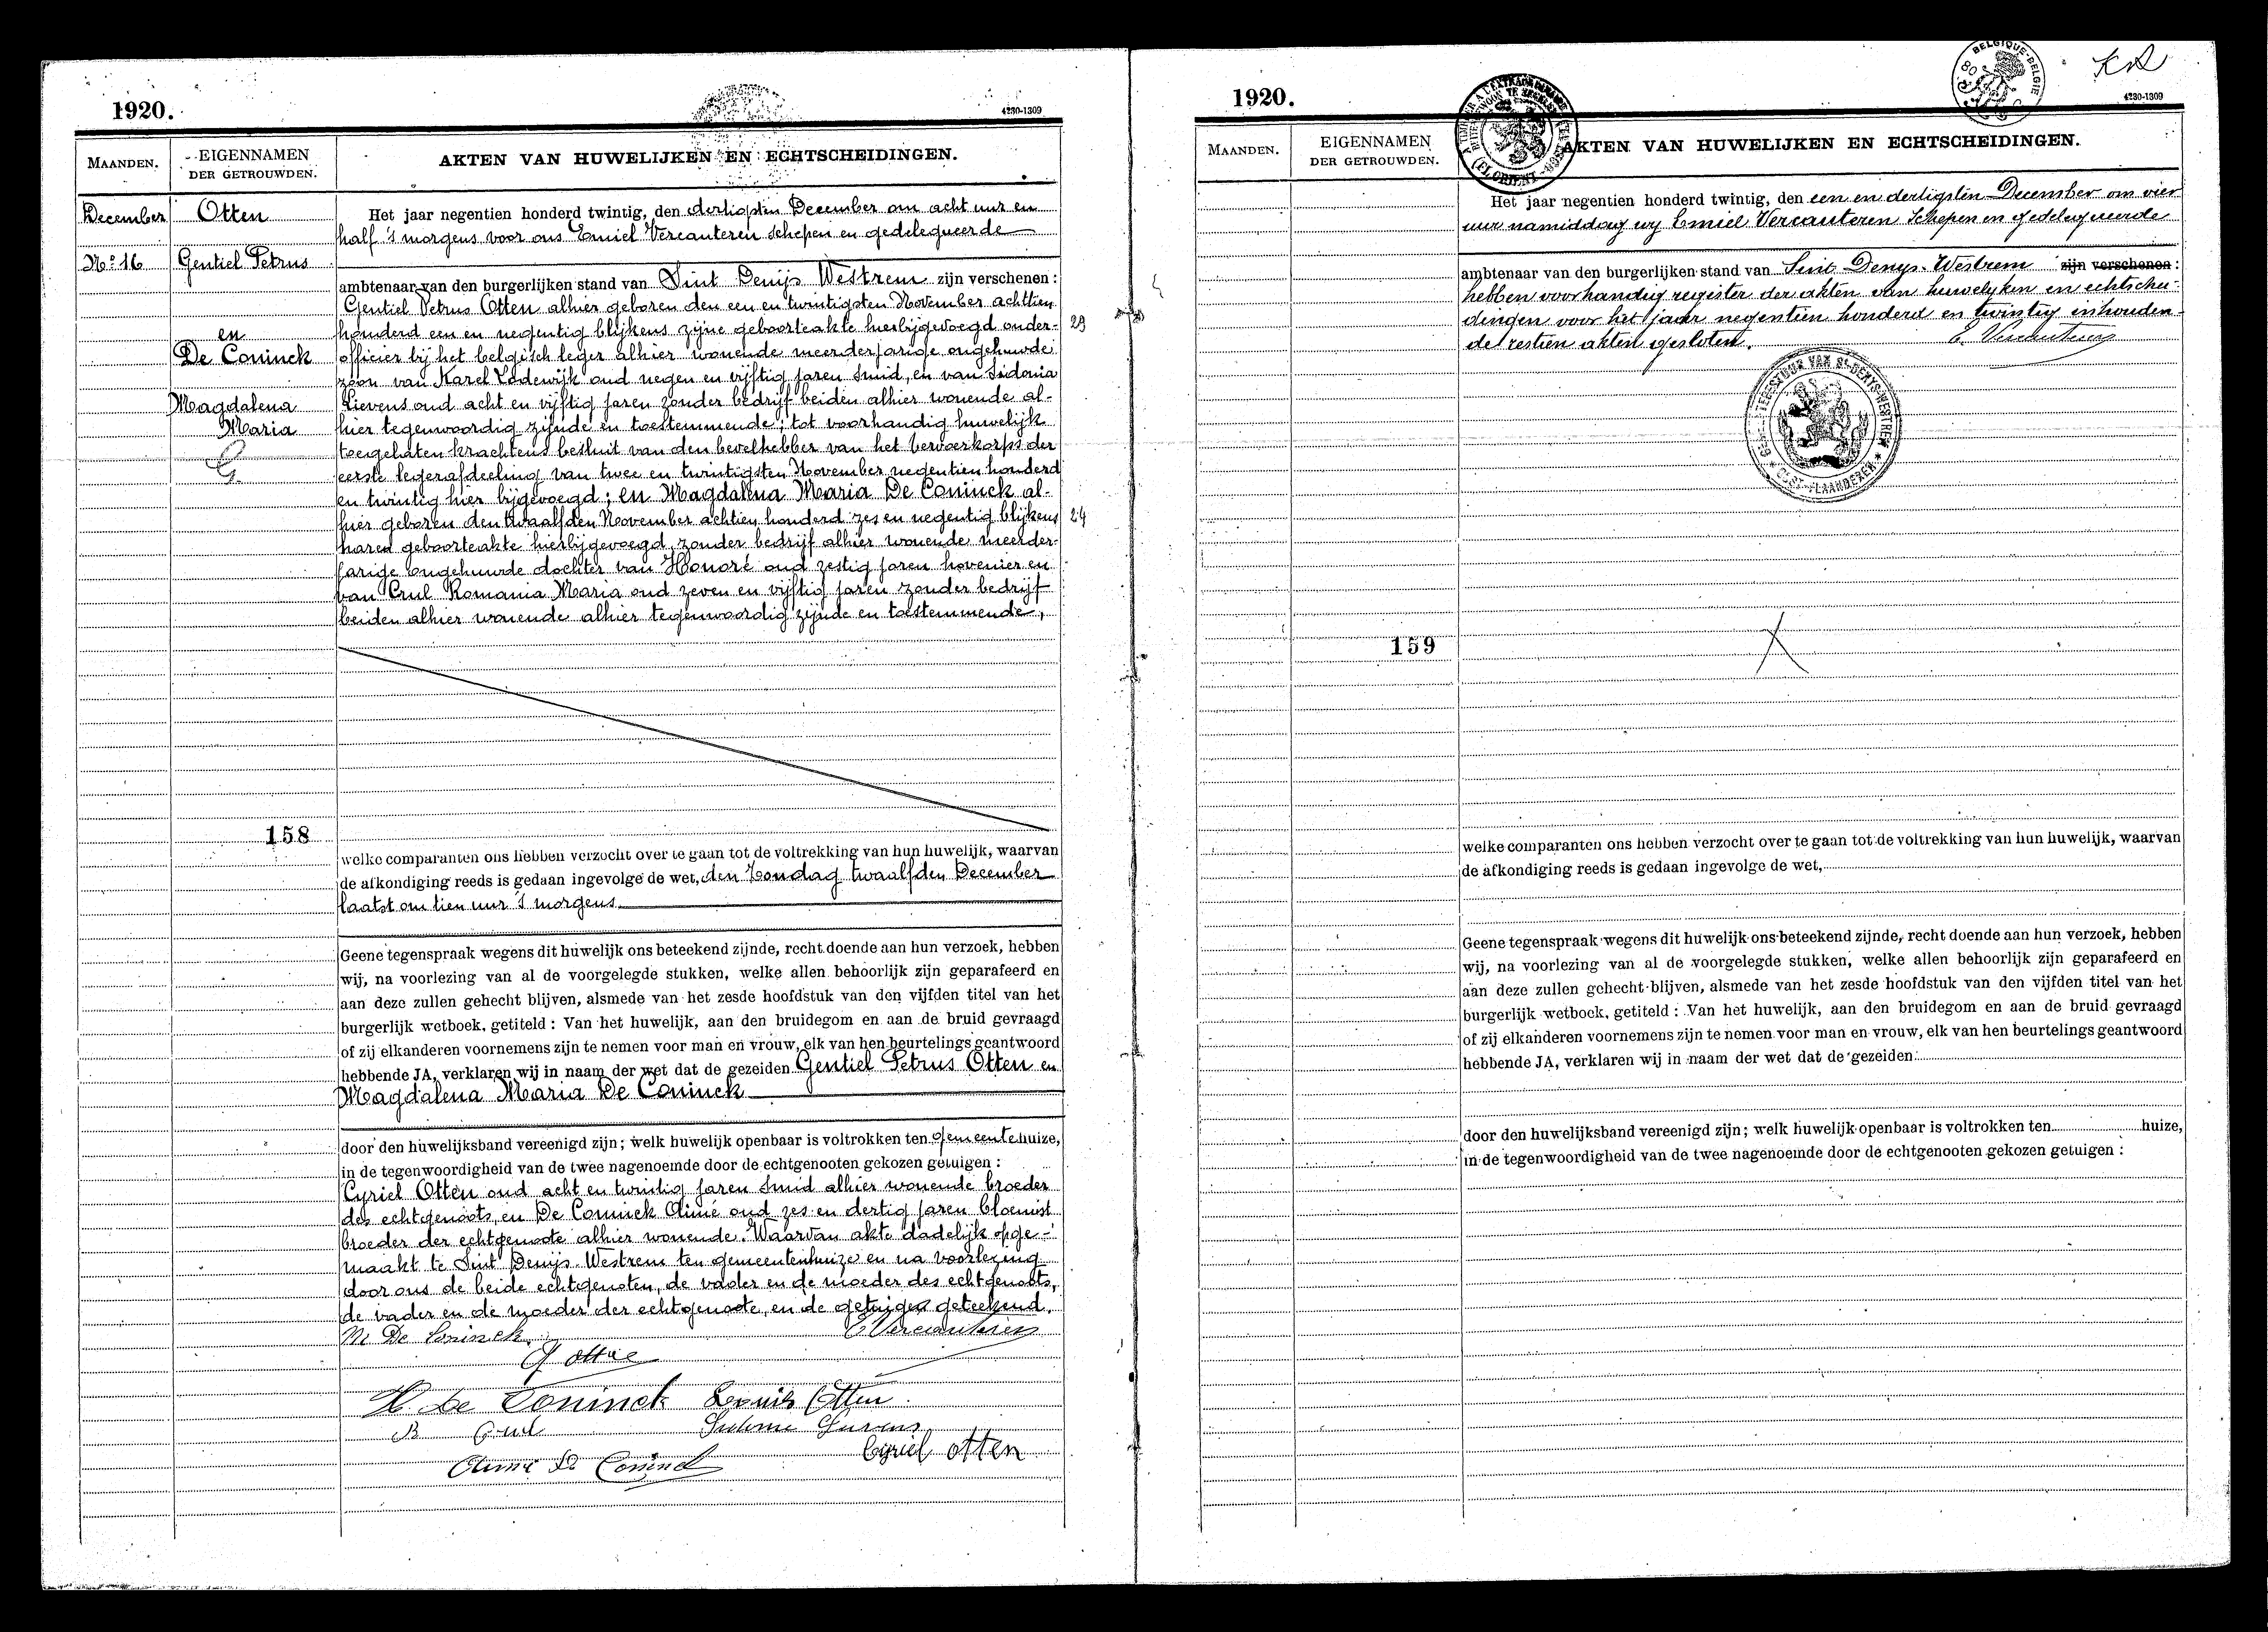 1920.
4230-1309
MAANDEN.
EIGENNAMEN
DER GETROUWDEN.
AKTEN VAN HUWELIJKEN EN ECHTSCHEIDINGEN.
December
Otten
Nº 16
Gentiel Petrus
en
De Coninck
Magdalena
Maria
G.
158
Het jaar negentien honderd twintig, den dertigsten December om acht uur en
half 's morgens voor ons Emiel Vercauteren schepen en gedelegueerde
ambtenaar van den burgerlijken stand van Sint Denijs Westrem zijn verschenen :
Gentiel Petrus Otten alhier geboren den een en twintigsten November achttien
honderd een en negentig blijkens zijne geboorteakte hierbijgevoegd onder- 23
officier bij het belgisch leger alhier wonende meerderjarige ongehuwde
zoon van Karel Lodewijk oud negen en vijftig jaren smid, en van Sidonia
Lievens oud acht en vijftig jaren zonder bedrijf beiden alhier wonende al-
hier tegenwoordig zijnde en toestemmende; tot voorhandig huwelijk
toegelaten krachtens besluit van den bevelhebber van het vervoerkorps der
eerste legerafdeeling van twee en twintigsten November negentien honderd
en twintig hier bijgevoegd ; en Magdalena Maria De Coninck al-
hier geboren den twaalfden November achtien honderd zes en negentig blijkens 24
hared geboorteakte hierbijgevoegd, zonder bedrijf alhier wonende meerder-
jarige ongehuwde dochter van Honoré oud zestig jaren hovenier en
van Crul Romania Maria oud zeven en vijftig jaren zonder bedrijf
beiden alhier wonende alhier tegenwoordig zijnde en toestemmende,
welke comparanten ons hebben verzocht over te gaan tot de voltrekking van hun huwelijk, waarvan
de afkondiging reeds is gedaan ingevolge de wet, den Zondag twaalfden December
laatst om tien uur 's morgens
Geene tegenspraak wegens dit huwelijk ons beteekend zijnde, recht doende aan hun verzoek, hebben
wij, na voorlezing van al de voorgelegde stukken, welke allen behoorlijk zijn geparafeerd en
aan deze zullen gehecht blijven, alsmede van het zesde hoofdstuk van den vijfden titel van het
burgerlijk wetboek, getiteld : Van het huwelijk, aan den bruidegom en aan de bruid gevraagd
of zij elkanderen voornemens zijn te nemen voor man en vrouw, elk van hen beurtelings geantwoord
hebbende JA, verklaren wij in naam der wet dat de gezeiden Gentiel Petrus Otten en
Magdalena Maria De Coninck
door den huwelijksband vereenigd zijn ; welk huwelijk openbaar is voltrokken ten gemeentehuize,
in de tegenwoordigheid van de twee nagenoemde door de echtgenooten gekozen getuigen :
Cyriel Otten oud acht en twintig jaren smid alhier wonende broeder
des echtgenoots, en De Coninck Aimé oud zes en dertig jaren bloemist
broeder der echtgenoote alhier wonende. Waarvan akte dadelijk opge-
maakt te Sint Denijs Westrem ten gemeentenhuize en na voorlezing
door ons de beide echtgenoten, de vader en de moeder des echtgenoots,
de vader en de moeder der echtgenoote, en de getuigen geteekend.
M De Coninck E Vercauteren
G Otten
H. De Coninck Louis Otten
R Crul Sidonie Lievens
Aimé De Coninck Cyriel Otten
1920.
4230-1309
BELGIQUE-BELGIE
MAANDEN.
EIGENNAMEN
DER GETROUWDEN.
AKTEN VAN HUWELIJKEN EN ECHTSCHEIDINGEN.
159
Het jaar negentien honderd twintig, den een en dertigsten December om vier
uur namiddag wij Emiel Vercauteren Schepen en gedelegueerde
ambtenaar van den burgerlijken stand van Sint Denys-Westrem zijn verschenen :
hebben voorhandig register der akten van huwelyken en echtschei-
dingen voor het jaar negentien honderd en twintig inhouden-
de zestien akten gesloten. E. Vercauteren
GEMEENTEBESTUUR VAN St DENYS-WESTREM
OOST-VLAANDEREN
welke comparanten ons hebben verzocht over te gaan tot de voltrekking van hun huwelijk, waarvan
de afkondiging reeds is gedaan ingevolge de wet,
Geene tegenspraak wegens dit huwelijk ons beteekend zijnde, recht doende aan hun verzoek, hebben
wij, na voorlezing van al de voorgelegde stukken, welke allen behoorlijk zijn geparafeerd en
aan deze zullen gehecht blijven, alsmede van het zesde hoofdstuk van den vijfden titel van het
burgerlijk wetboek, getiteld : Van het huwelijk, aan den bruidegom en aan de bruid gevraagd
of zij elkanderen voornemens zijn te nemen voor man en vrouw, elk van hen beurtelings geantwoord
hebbende JA, verklaren wij in naam der wet dat de gezeiden
door den huwelijksband vereenigd zijn ; welk huwelijk openbaar is voltrokken ten huize,
in de tegenwoordigheid van de twee nagenoemde door de echtgenooten gekozen getuigen :